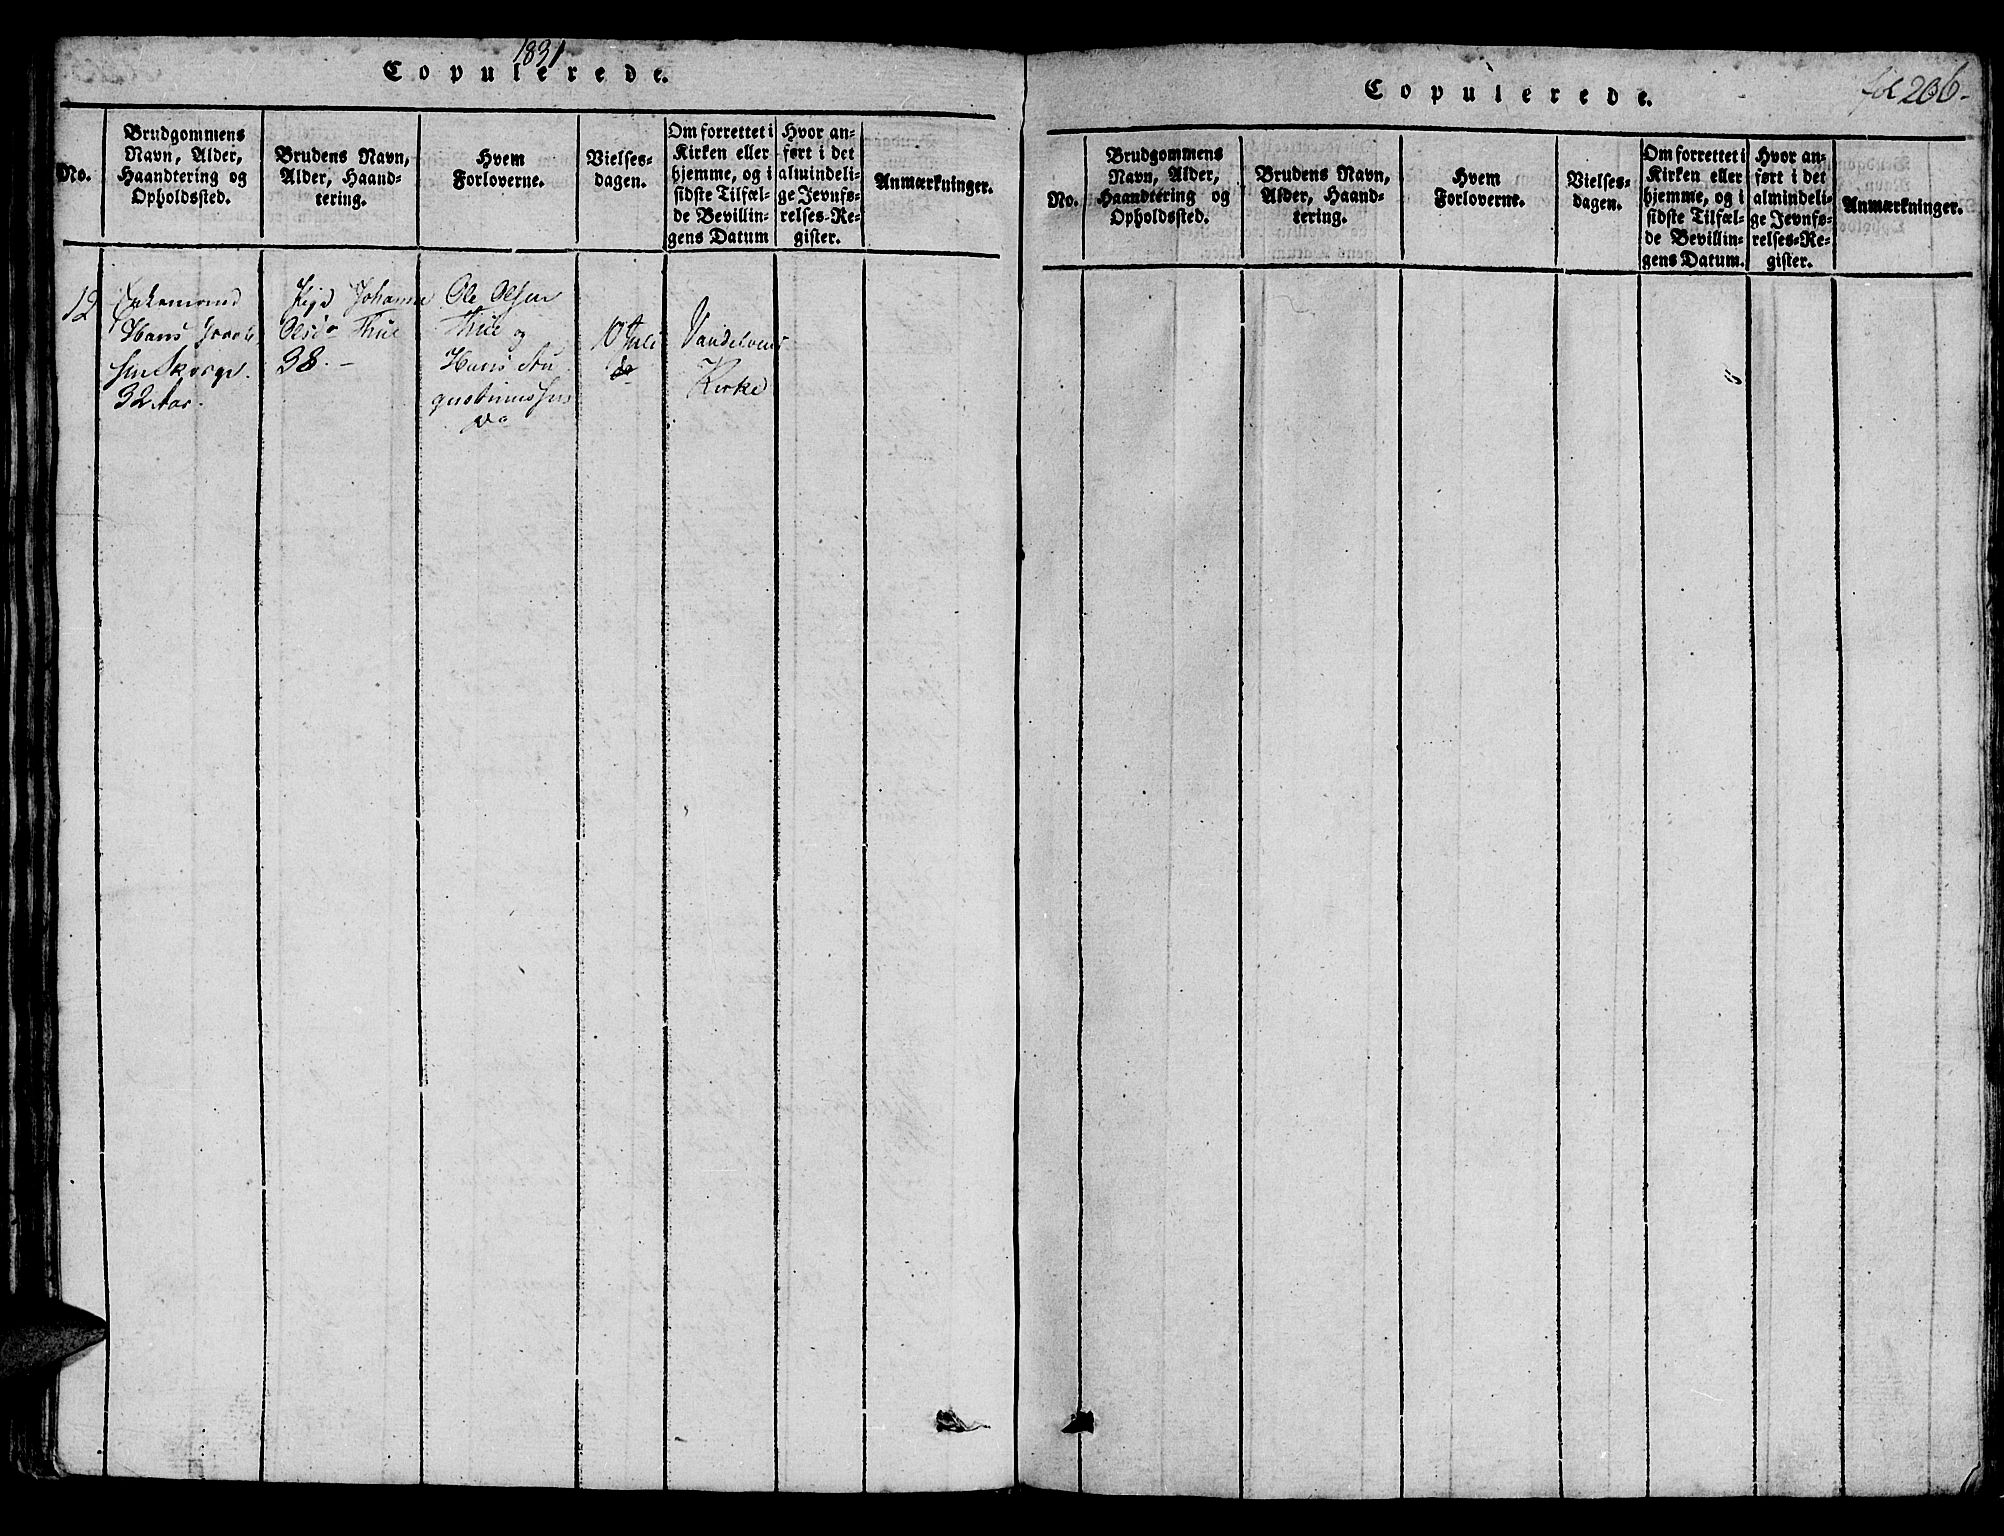 1831
Copulerede.
No.
Brudgommens
Navn, Alder,
Haandtering og
Opholdssted.
Brudens Navn,
Alder, Haand-
tering.
Hvem
Forloverne.
Vielses-
dagen.
Om forrettet i
Kirken eller
hjemme, og i
sidste Tilfæl-
de Bevillin-
gens Datum
Hvor an-
ført i det
almindeli-
ge Jevnfø-
relses-Re-
gister.
Anmærkninger.
12
Enkemand
Hans
32 Aar.
Pige Johanne
Thue
38.
Ole Olsen
Thue og
Hans Au
gustinussen
10 Juli
Kirke
Copulerede.
fol 206.
No.
Brudgommens
Navn, Alder,
Haandtering og
Opholdssted.
Brudens Navn,
Alder, Haand-
tering.
Hvem
Forloverne.
Vielses-
dagen.
Om forrettet i
Kirken eller
hjemme, og i
sidste Tilfæl-
de Bevillin-
gens Datum.
Hvor an-
ført i det
almindeli-
ge Jevnfø-
relses-Re-
gister.
Anmærkninger.